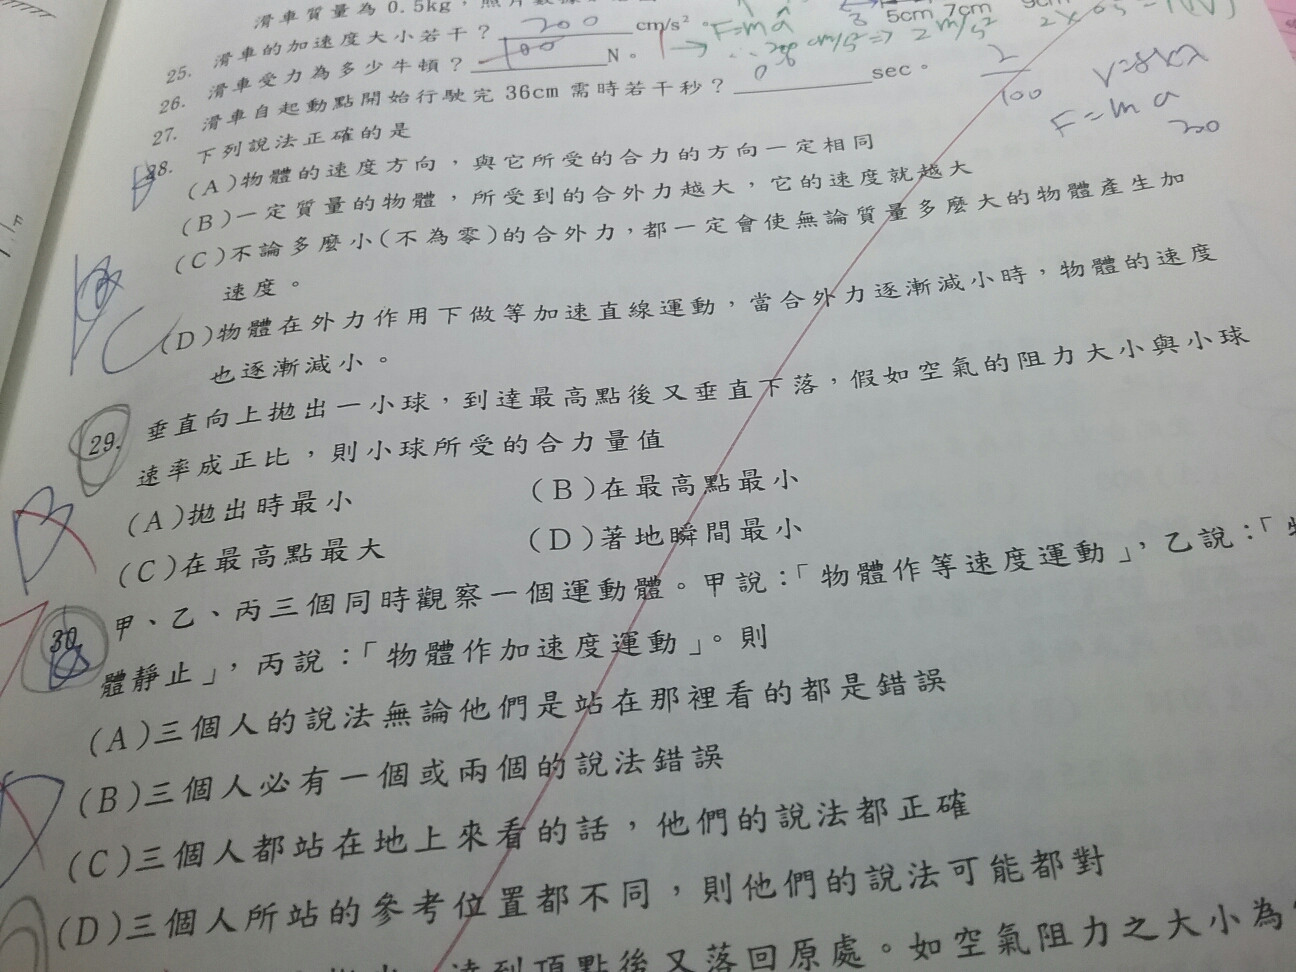 滑車質量為0.5kg，照片數據
5cm 7cm 9cm
25. 滑車的加速度大小若干？ 200 cm/s²。
F=ma
→ 200 cm/s² => 2 m/s²
26. 滑車受力為多少牛頓？ 100 N。
27. 滑車自起動點開始行駛完36cm需時若干秒？ sec。
2/100
F=ma
200
28. 下列說法正確的是
(A)物體的速度方向，與它所受的合力的方向一定相同
(B)一定質量的物體，所受到的合外力越大，它的速度就越大
(C)不論多麼小(不為零)的合外力，都一定會使無論質量多麼大的物體產生加
速度。
C
(D)物體在外力作用下做等加速直線運動，當合外力逐漸減小時，物體的速度
也逐漸減小。
29. 垂直向上拋出一小球，到達最高點後又垂直下落，假如空氣的阻力大小與小球
速率成正比，則小球所受的合力量值
B
(A)拋出時最小 (B)在最高點最小
(C)在最高點最大 (D)著地瞬間最小
30. 甲、乙、丙三個同時觀察一個運動體。甲說：「物體作等速度運動」，乙說：「物
體靜止」，丙說：「物體作加速度運動」。則
(A)三個人的說法無論他們是站在那裡看的都是錯誤
D
(B)三個人必有一個或兩個的說法錯誤
(C)三個人都站在地上來看的話，他們的說法都正確
(D)三個人所站的參考位置都不同，則他們的說法可能都對
達到頂點後又落回原處。如空氣阻力之大小為